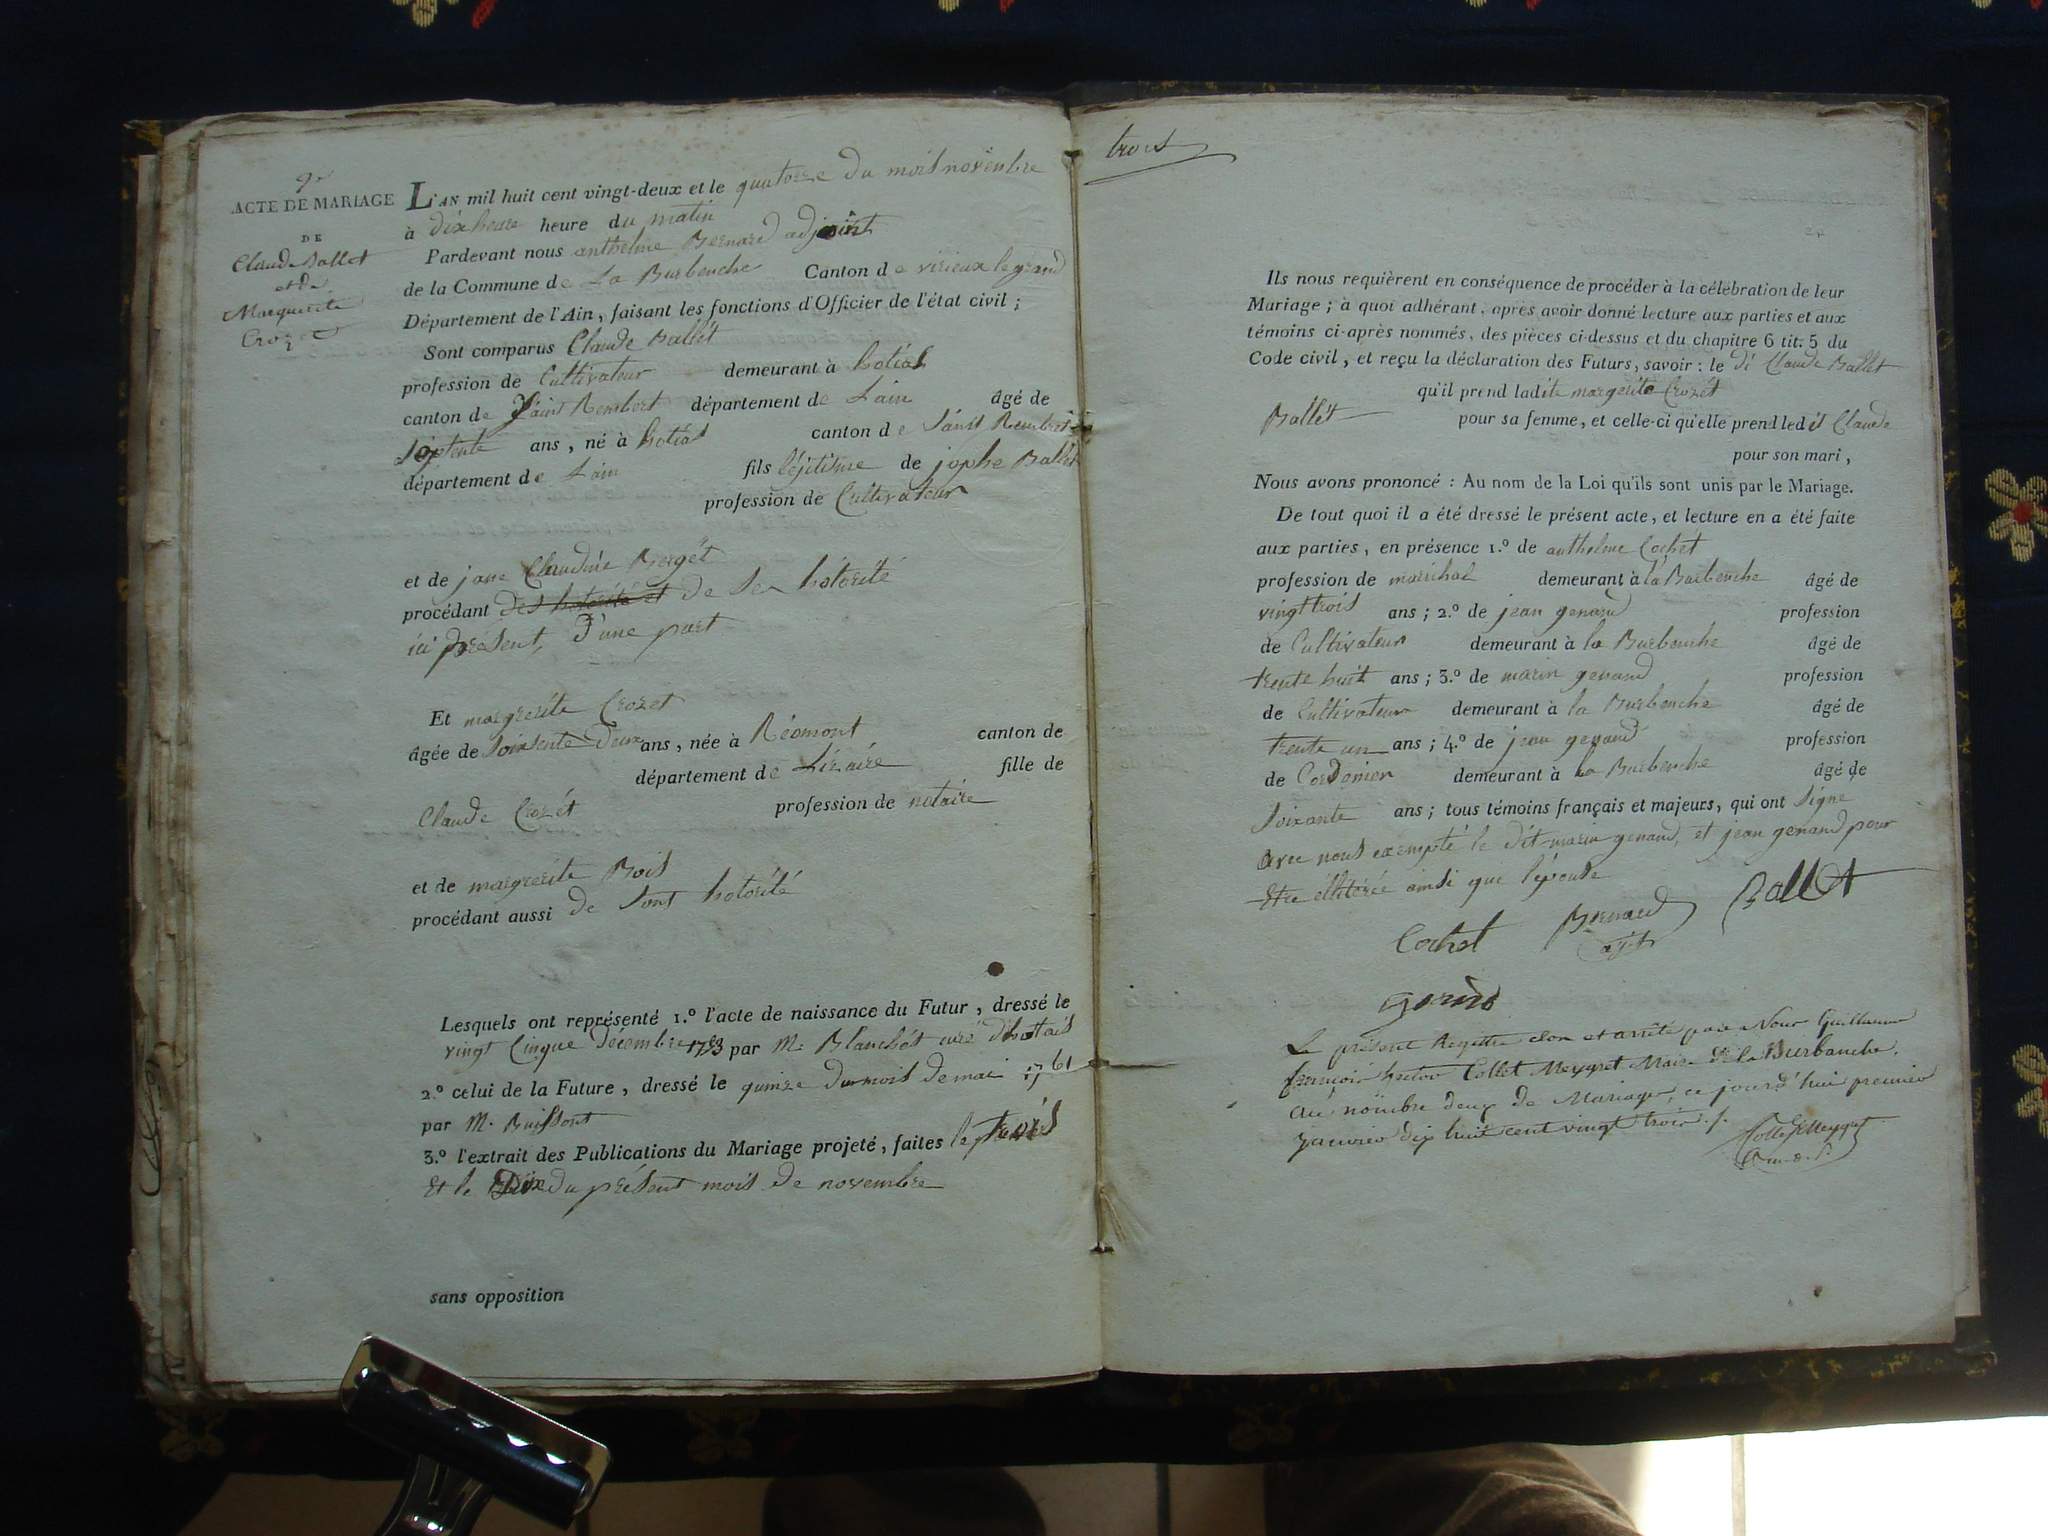 ACTE DE MARIAGE
DE
Claude Ballet
et de
Marguerite
Crozet
L'AN mil huit cent vingt-deux et le quatorze du mois novembre
à dix heure heure du matin
Pardevant nous anthelme Bernard adjoint
de la Commune de La Burbenche Canton de virieux le grand
Département de l'Ain, faisant les fonctions d'Officier de l'état civil ;
Sont comparus Claude Ballét
profession de Cultivateur demeurant à hotias
canton de Saint Rembert département de Lain âgé de
ans, né à hotias canton de Saint Rembert
département de Lain fils légitime de jophe Ballét
profession de Cultivateur
et de jane Claudine Bergét
procédant des hotorité et de Ser hotorité
ici présent, d'une part
Et margrerite Crozet
âgée de Soixsente deux ans, née à Réomont canton de
département de Lizaire fille de
Claude Crozét profession de notaire
et de margrerite Bois
procédant aussi de Sont hotorité
Lesquels ont représenté 1.º l'acte de naissance du Futur, dressé le
vingt Cinque décembre par M. Blanchét curé d'hotais
2.º celui de la Future, dressé le quinze du mois de mai 1761
par M. Buissont
3.º l'extrait des Publications du Mariage projeté, faites le trois
Et le Dix du présent mois de novembre
sans opposition
trois
Ils nous requièrent en conséquence de procéder à la célébration de leur
Mariage ; à quoi adhérant, après avoir donné lecture aux parties et aux
témoins ci-après nommés, des pièces ci-dessus et du chapitre 6 tit. 5 du
Code civil, et reçu la déclaration des Futurs, savoir : le di Claude Ballet
qu'il prend ladite margerite Crozét
pour sa femme, et celle-ci qu'elle prend ledit Claude
Ballét pour son mari,
Nous avons prononcé : Au nom de la Loi qu'ils sont unis par le Mariage.
De tout quoi il a été dressé le présent acte, et lecture en a été faite
aux parties, en présence 1.º de anthelme Cochet
profession de marichal demeurant à la Burbenche âgé de
vingt trois ans ; 2.º de jean genand profession
de Cultivateur demeurant à la Burbenche âgé de
trente huit ans ; 3.º de marin genand profession
de Cultivateur demeurant à la Burbenche âgé de
trente un ans ; 4.º de jean genand profession
de Cordonier demeurant à la Burbenche âgé de
Soixante ans ; tous témoins français et majeurs, qui ont Signé
avec nous exempté le dit marin genand, et jean genand pour
Etre élitérée ainsi que l'épouse
Cochet Bernard Ballet
ajt
Le présent Registre clos et arrêté par Nous Guillaume
françois hector Collet Meygret Maire de la Burbanche.
au nombre deux de Mariages, ce jourd'hui premier
Janvier dix huit cent vingt trois ./.
Collet Meygret